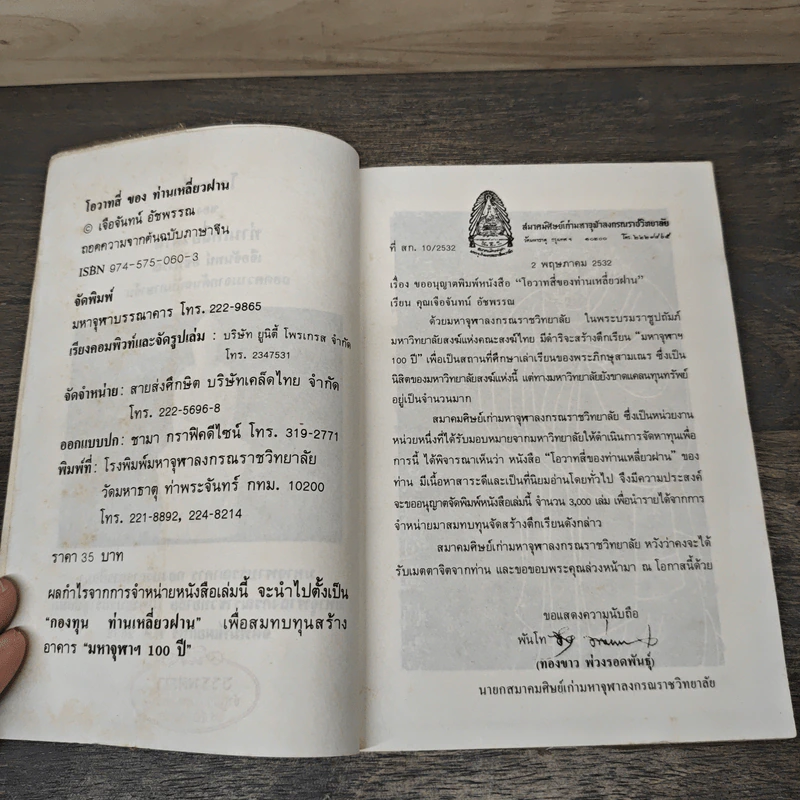 โอวาทสี่ ของ ท่านเหลี่ยวฝาน
© เจือจันทน์ อัชพรรณ
ถอดความจากต้นฉบับภาษาจีน
ISBN 974-575-060-3
จัดพิมพ์
มหาจุฬาบรรณาคาร โทร. 222-9865
เรียงคอมพิวท์และจัดรูปเล่ม : บริษัท ยูนิตี้ โพรเกรส จำกัด
โทร. 2347531
จัดจำหน่าย : สายส่งศึกษิต บริษัทเคล็ดไทย จำกัด
โทร. 222-5696-8
ออกแบบปก : ชามา กราฟิคดีไซน์ โทร. 319-2771
พิมพ์ที่ : โรงพิมพ์มหาจุฬาลงกรณราชวิทยาลัย
วัดมหาธาตุ ท่าพระจันทร์ กทม. 10200
โทร. 221-8892, 224-8214
ราคา 35 บาท
ผลกำไรจากการจำหน่ายหนังสือเล่มนี้ จะนำไปตั้งเป็น
"กองทุน ท่านเหลี่ยวฝาน" เพื่อสมทบทุนสร้าง
อาคาร "มหาจุฬาฯ 100 ปี"
สมาคมศิษย์เก่ามหาจุฬาลงกรณราชวิทยาลัย
วัดมหาธาตุ กรุงเทพฯ ๑๐๒๐๐
ที่ สก. 10/2532
2 พฤษภาคม 2532
เรื่อง ขออนุญาตพิมพ์หนังสือ "โอวาทสี่ของท่านเหลี่ยวฝาน"
เรียน คุณเจือจันทน์ อัชพรรณ
ด้วยมหาจุฬาลงกรณราชวิทยาลัย ในพระบรมราชูปถัมภ์
มหาวิทยาลัยสงฆ์แห่งคณะสงฆ์ไทย มีดำริจะสร้างตึกเรียน "มหาจุฬาฯ
100 ปี" เพื่อเป็นสถานที่ศึกษาเล่าเรียนของพระภิกษุสามเณร ซึ่งเป็น
นิสิตของมหาวิทยาลัยสงฆ์แห่งนี้ แต่ทางมหาวิทยาลัยยังขาดแคลนทุนทรัพย์
อยู่เป็นจำนวนมาก
สมาคมศิษย์เก่ามหาจุฬาลงกรณราชวิทยาลัย ซึ่งเป็นหน่วยงาน
หน่วยหนึ่งที่ได้รับมอบหมายจากมหาวิทยาลัยให้ดำเนินการจัดหาทุนเพื่อ
การนี้ ได้พิจารณาเห็นว่า หนังสือ "โอวาทสี่ของท่านเหลี่ยวฝาน" ของ
ท่าน มีเนื้อหาสาระดีและเป็นที่นิยมอ่านโดยทั่วไป จึงมีความประสงค์
จะขออนุญาตจัดพิมพ์หนังสือเล่มนี้ จำนวน 3,000 เล่ม เพื่อนำรายได้จากการ
จำหน่ายมาสมทบทุนจัดสร้างตึกเรียนดังกล่าว
สมาคมศิษย์เก่ามหาจุฬาลงกรณราชวิทยาลัย หวังว่าคงจะได้
รับเมตตาจิตจากท่าน และขอขอบพระคุณล่วงหน้ามา ณ โอกาสนี้ด้วย
ขอแสดงความนับถือ
พันโท
(ทองขาว พ่วงรอดพันธุ์)
นายกสมาคมศิษย์เก่ามหาจุฬาลงกรณราชวิทยาลัย